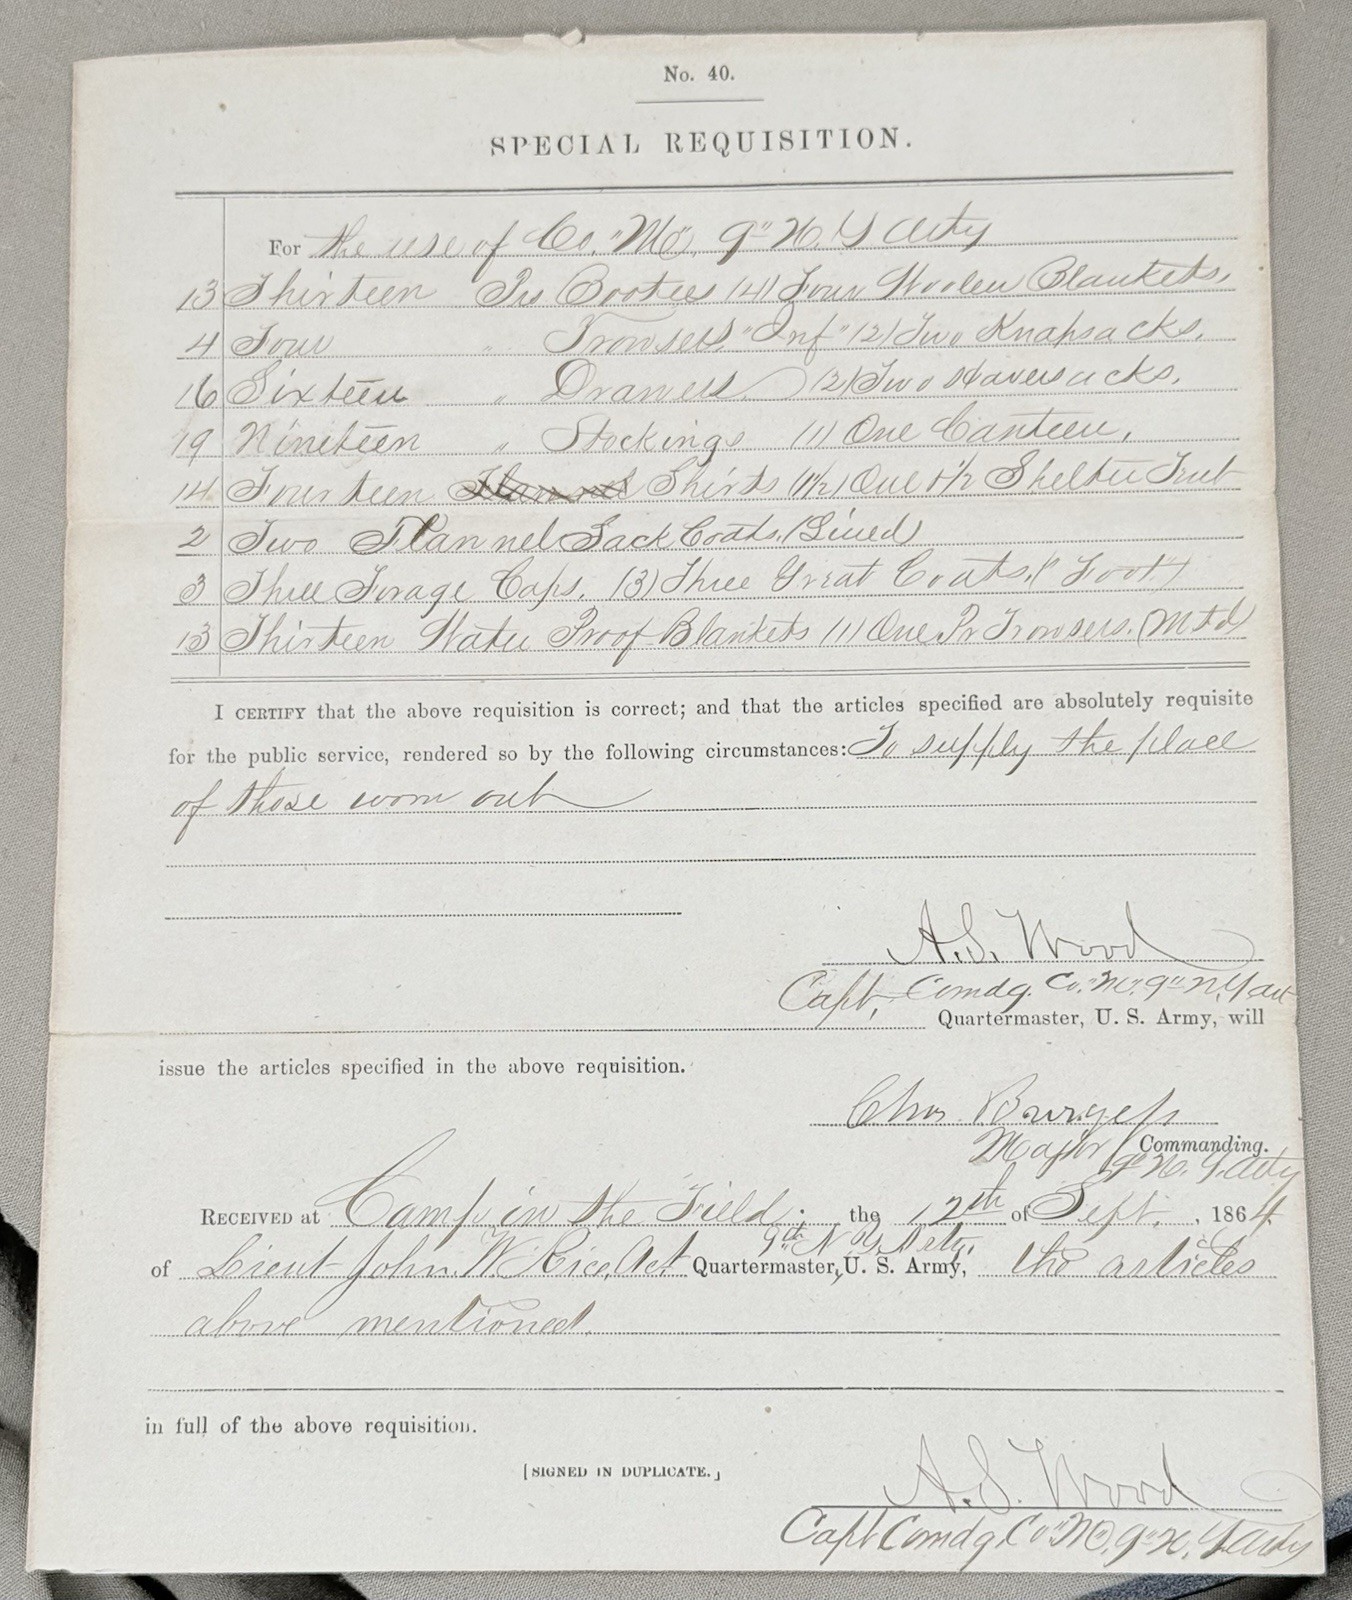 No. 40.
SPECIAL REQUISITION.
For the use of Co. "M", 9" N. Y Arty
13 Thirteen Prs Bootees (4) Four Woolen Blankets,
4 Four " Trowsers "Inf" (2) Two Knapsacks,
16 Sixteen " Drawers (2) Two Haversacks,
19 Nineteen " Stockings (1) One Canteen,
14 Fourteen Flannel Shirts (1½) One & ½ Shelter Tent
2 Two Flannel Sack Coats. (Lined)
3 Three Forage Caps. (3) Three Great Coats. ("Foot")
13 Thirteen Water Proof Blankets (1) One Pr Trowsers. (Mtd)
I CERTIFY that the above requisition is correct; and that the articles specified are absolutely requisite
for the public service, rendered so by the following circumstances: To supply the place
of those worn out
A. S. Wood
Capt, Comdg. Co. "M". 9" N. Y Art
Quartermaster, U. S. Army, will
issue the articles specified in the above requisition.
Chas. Burgess
Major Commanding.
9" N. Y. Arty
RECEIVED at Camp in the Field, the 12th of Sept. , 1864
9th N. Y. Arty.
of Lieut John W. Rice, Act Quartermaster, U. S. Army, the articles
above mentioned.
in full of the above requisition.
[SIGNED IN DUPLICATE.]
A. S. Wood
Capt Comdg. Co "M", 9" N. Y Arty